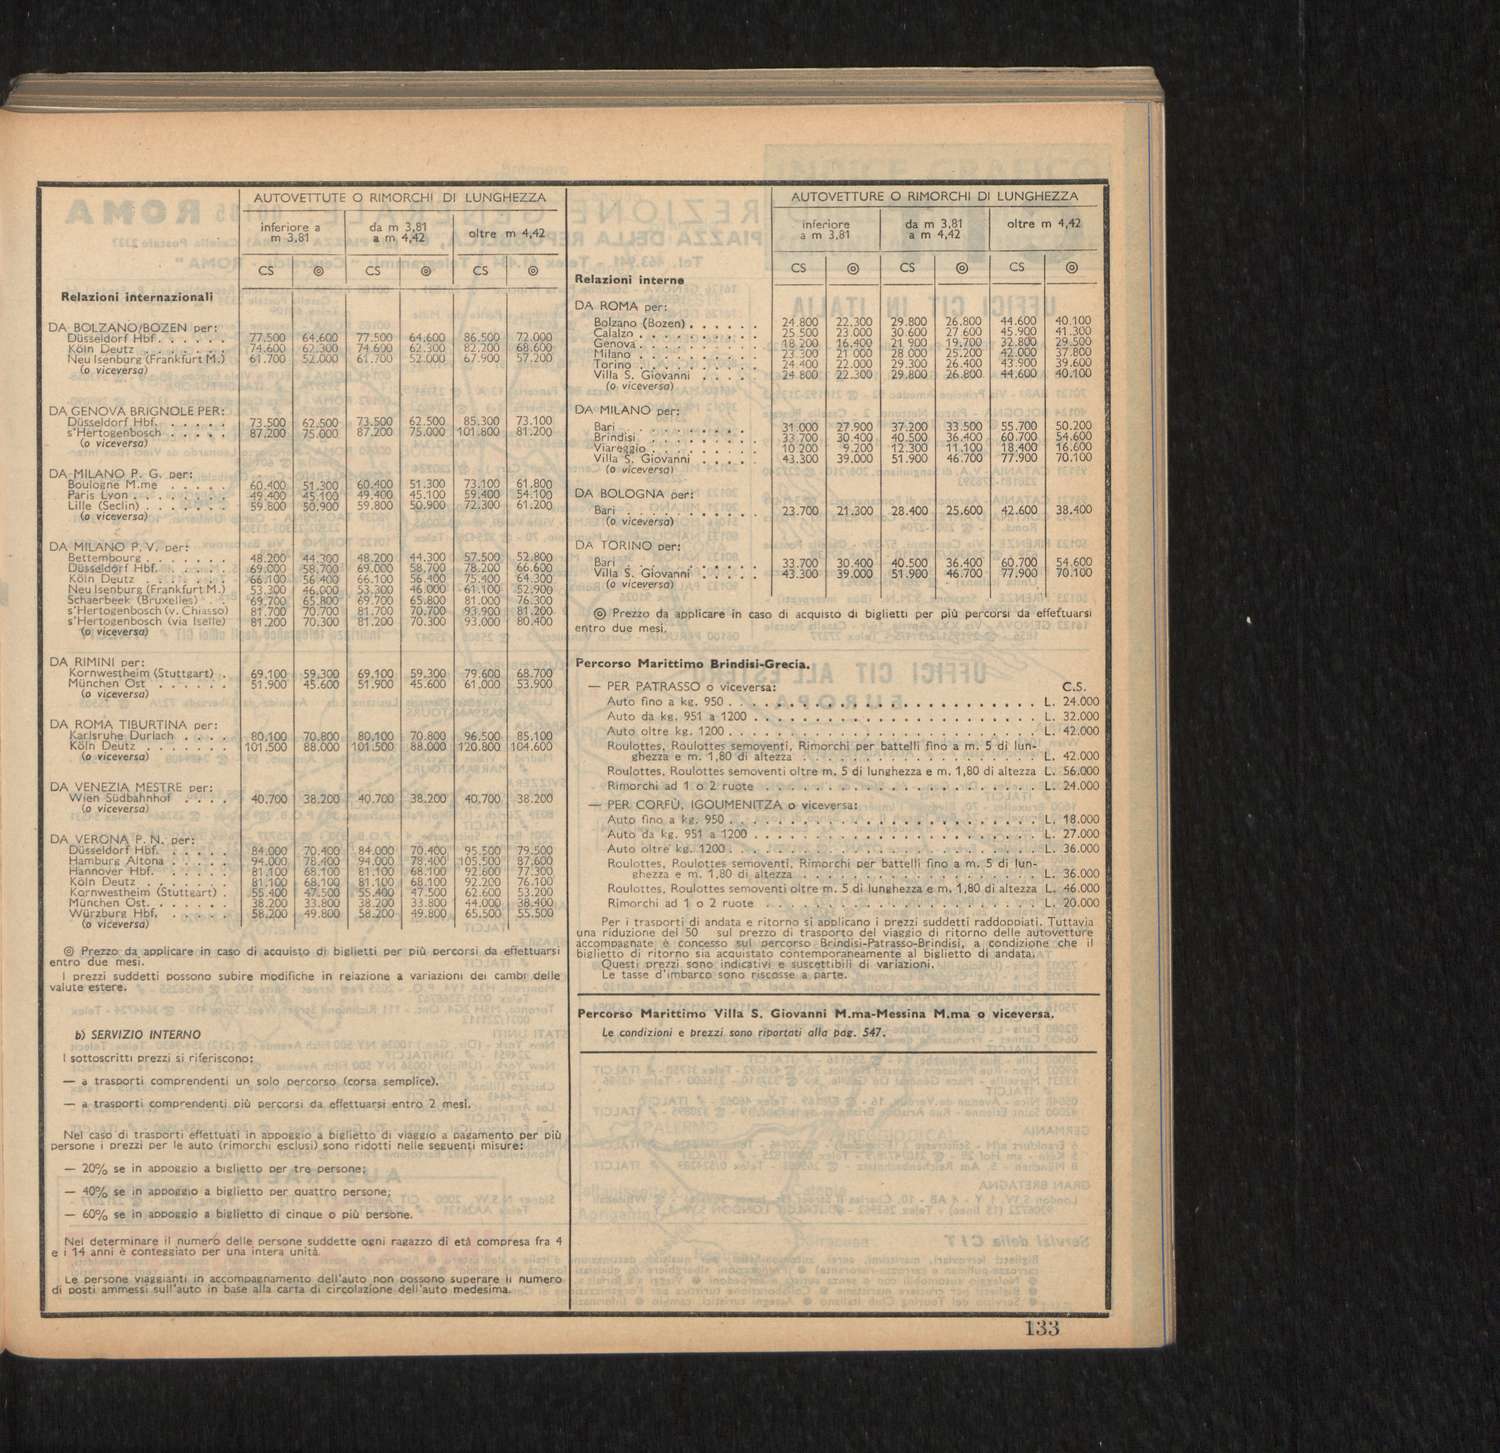 AUTOVETTUTE O RIMORCHI DI LUNGHEZZA
inferiore a m 3,81 | da m 3,81 a m 4,42 | oltre m 4,42
CS ◎ CS ◎ CS ◎
Relazioni internazionali
DA BOLZANO/BOZEN per:
Düsseldorf Hbf. . . . . . 77.500 64.600 77.500 64.600 86.500 72.000
Köln Deutz . . . . . . . 74.600 62.300 74.600 62.300 82.200 68.600
Neu Isenburg (Frankfurt M.) 61.700 52.000 61.700 52.000 67.900 57.200
(o viceversa)
DA GENOVA BRIGNOLE PER:
Düsseldorf Hbf. . . . . . 73.500 62.500 73.500 62.500 85.300 73.100
s'Hertogenbosch . . . . . 87.200 75.000 87.200 75.000 101.800 81.200
(o viceversa)
DA MILANO P. G. per:
Boulogne M.me . . . . . 60.400 51.300 60.400 51.300 73.100 61.800
Paris Lyon . . . . . . . . 49.400 45.100 49.400 45.100 59.400 54.100
Lille (Seclin) . . . . . . . 59.800 50.900 59.800 50.900 72.300 61.200
(o viceversa)
DA MILANO P. V. per:
Bettembourg . . . . . . 48.200 44.300 48.200 44.300 57.500 52.800
Düsseldorf Hbf. . . . . . 69.000 58.700 69.000 58.700 78.200 66.600
Köln Deutz . . . . . . . 66.100 56.400 66.100 56.400 75.400 64.300
Neu Isenburg (Frankfurt M.) 53.300 46.000 53.300 46.000 61.100 52.900
Schaerbeek (Bruxelles) . . 69.700 65.800 69.700 65.800 81.000 76.300
s'Hertogenbosch (v. Chiasso) 81.700 70.700 81.700 70.700 93.900 81.200
s'Hertogenbosch (via Iselle) 81.200 70.300 81.200 70.300 93.000 80.400
(o viceversa)
DA RIMINI per:
Kornwestheim (Stuttgart) . 69.100 59.300 69.100 59.300 79.600 68.700
München Ost . . . . . . 51.900 45.600 51.900 45.600 61.000 53.900
(o viceversa)
DA ROMA TIBURTINA per:
Karlsruhe Durlach . . . . 80.100 70.800 80.100 70.800 96.500 85.100
Köln Deutz . . . . . . . 101.500 88.000 101.500 88.000 120.800 104.600
(o viceversa)
DA VENEZIA MESTRE per:
Wien Südbahnhof . . . . 40.700 38.200 40.700 38.200 40.700 38.200
(o viceversa)
DA VERONA P. N. per:
Düsseldorf Hbf. . . . . . 84.000 70.400 84.000 70.400 95.500 79.500
Hamburg Altona . . . . . 94.000 78.400 94.000 78.400 105.500 87.600
Hannover Hbf. . . . . . 81.100 68.100 81.100 68.100 92.600 77.300
Köln Deutz . . . . . . . 81.100 68.100 81.100 68.100 92.200 76.100
Kornwestheim (Stuttgart) . 55.400 47.500 55.400 47.500 62.600 53.200
München Ost. . . . . . . 38.200 33.800 38.200 33.800 44.000 38.400
Würzburg Hbf. . . . . . 58.200 49.800 58.200 49.800 65.500 55.500
(o viceversa)
◎ Prezzo da applicare in caso di acquisto di biglietti per più percorsi da effettuarsi
entro due mesi.
I prezzi suddetti possono subire modifiche in relazione a variazioni dei cambi delle
valute estere.
b) SERVIZIO INTERNO
I sottoscritti prezzi si riferiscono:
— a trasporti comprendenti un solo percorso (corsa semplice).
— a trasporti comprendenti più percorsi da effettuarsi entro 2 mesi.
Nel caso di trasporti effettuati in appoggio a biglietto di viaggio a pagamento per più
persone i prezzi per le auto (rimorchi esclusi) sono ridotti nelle seguenti misure:
— 20% se in appoggio a biglietto per tre persone;
— 40% se in appoggio a biglietto per quattro persone;
— 60% se in appoggio a biglietto di cinque o più persone.
Nel determinare il numero delle persone suddette ogni ragazzo di età compresa fra 4
e i 14 anni è conteggiato per una intera unità.
Le persone viaggianti in accompagnamento dell'auto non possono superare il numero
di posti ammessi sull'auto in base alla carta di circolazione dell'auto medesima.
AUTOVETTURE O RIMORCHI DI LUNGHEZZA
inferiore a m 3,81 | da m 3,81 a m 4,42 | oltre m 4,42
CS ◎ CS ◎ CS ◎
Relazioni interne
DA ROMA per:
Bolzano (Bozen) . . . . . . 24.800 22.300 29.800 26.800 44.600 40.100
Calalzo . . . . . . . . . . 25.500 23.000 30.600 27.600 45.900 41.300
Genova . . . . . . . . . . 18.200 16.400 21.900 19.700 32.800 29.500
Milano . . . . . . . . . . 23.300 21 000 28.000 25.200 42.000 37.800
Torino . . . . . . . . . . 24.400 22.000 29.300 26.400 43.900 39.600
Villa S. Giovanni . . . . . 24 800 22.300 29.800 26.800 44.600 40.100
(o viceversa)
DA MILANO per:
Bari . . . . . . . . . . 31 000 27.900 37.200 33.500 55.700 50.200
Brindisi . . . . . . . . . 33.700 30.400 40.500 36.400 60.700 54.600
Viareggio . . . . . . . . . 10 200 9.200 12.300 11.100 18.400 16.600
Villa S. Giovanni . . . . . 43.300 39.000 51.900 46.700 77.900 70.100
(o viceversa)
DA BOLOGNA per:
Bari . . . . . . . . . . 23.700 21.300 28.400 25.600 42.600 38.400
(o viceversa)
DA TORINO per:
Bari . . . . . . . . . . 33.700 30.400 40.500 36.400 60.700 54.600
Villa S. Giovanni . . . . . 43.300 39.000 51.900 46.700 77.900 70.100
(o viceversa)
◎ Prezzo da applicare in caso di acquisto di biglietti per più percorsi da effettuarsi
entro due mesi.
Percorso Marittimo Brindisi-Grecia.
— PER PATRASSO o viceversa: C.S.
Auto fino a kg. 950 . . . . . . L. 24.000
Auto da kg. 951 a 1200 . . . . . . L. 32.000
Auto oltre kg. 1200 . . . . . . L. 42.000
Roulottes, Roulottes semoventi, Rimorchi per battelli fino a m. 5 di lun-
ghezza e m. 1,80 di altezza . . . . . . L. 42.000
Roulottes, Roulottes semoventi oltre m. 5 di lunghezza e m. 1,80 di altezza L. 56.000
Rimorchi ad 1 o 2 ruote . . . . . . L. 24.000
— PER CORFÙ, IGOUMENITZA o viceversa:
Auto fino a kg. 950 . . . . . . L. 18.000
Auto da kg. 951 a 1200 . . . . . . L. 27.000
Auto oltre kg. 1200 . . . . . . L. 36.000
Roulottes, Roulottes semoventi, Rimorchi per battelli fino a m. 5 di lun-
ghezza e m. 1,80 di altezza . . . . . . L. 36.000
Roulottes, Roulottes semoventi oltre m. 5 di lunghezza e m. 1,80 di altezza L. 46.000
Rimorchi ad 1 o 2 ruote . . . . . . L. 20.000
Per i trasporti di andata e ritorno si applicano i prezzi suddetti raddoppiati. Tuttavia
una riduzione del 50 sul prezzo di trasporto del viaggio di ritorno delle autovetture
accompagnate è concesso sul percorso Brindisi-Patrasso-Brindisi, a condizione che il
biglietto di ritorno sia acquistato contemporaneamente al biglietto di andata.
Questi prezzi sono indicativi e suscettibili di variazioni.
Le tasse d'imbarco sono riscosse a parte.
Percorso Marittimo Villa S. Giovanni M.ma-Messina M.ma o viceversa.
Le condizioni e prezzi sono riportati alla pag. 547.
133